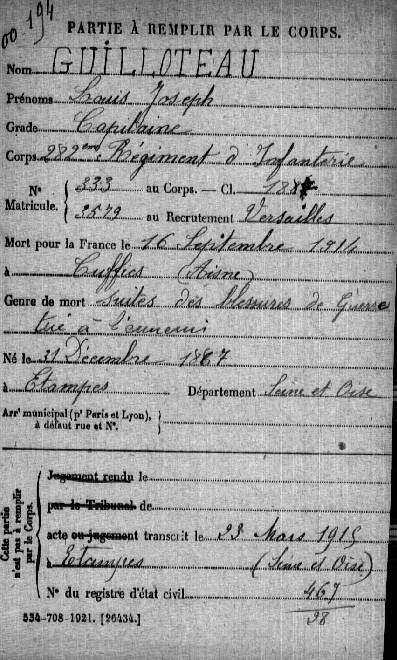 00 194
PARTIE À REMPLIR PAR LE CORPS.
Nom GUILLOTEAU
Prénoms Louis Joseph
Grade Capitaine
Corps 282eme Régiment d'Infanterie
N° Matricule. { 333 au Corps. — Cl. 1887
3579 au Recrutement Versailles
Mort pour la France le 16 Septembre 1914
à Cuffies (Aisne)
Genre de mort suites des blessures de Guerre
tué à l'ennemi
Né le 31 Décembre 1867
à Etampes Département Seine et Oise
Arrt municipal (pr Paris et Lyon), à défaut rue et N°. }
Cette partie n'est pas à remplir par le Corps. { Jugement rendu le
par le Tribunal de
acte ou jugement transcrit le 23 Mars 1915
à Etampes (Seine et Oise)
N° du registre d'état civil 467
28
534-708-1921. [26434.]